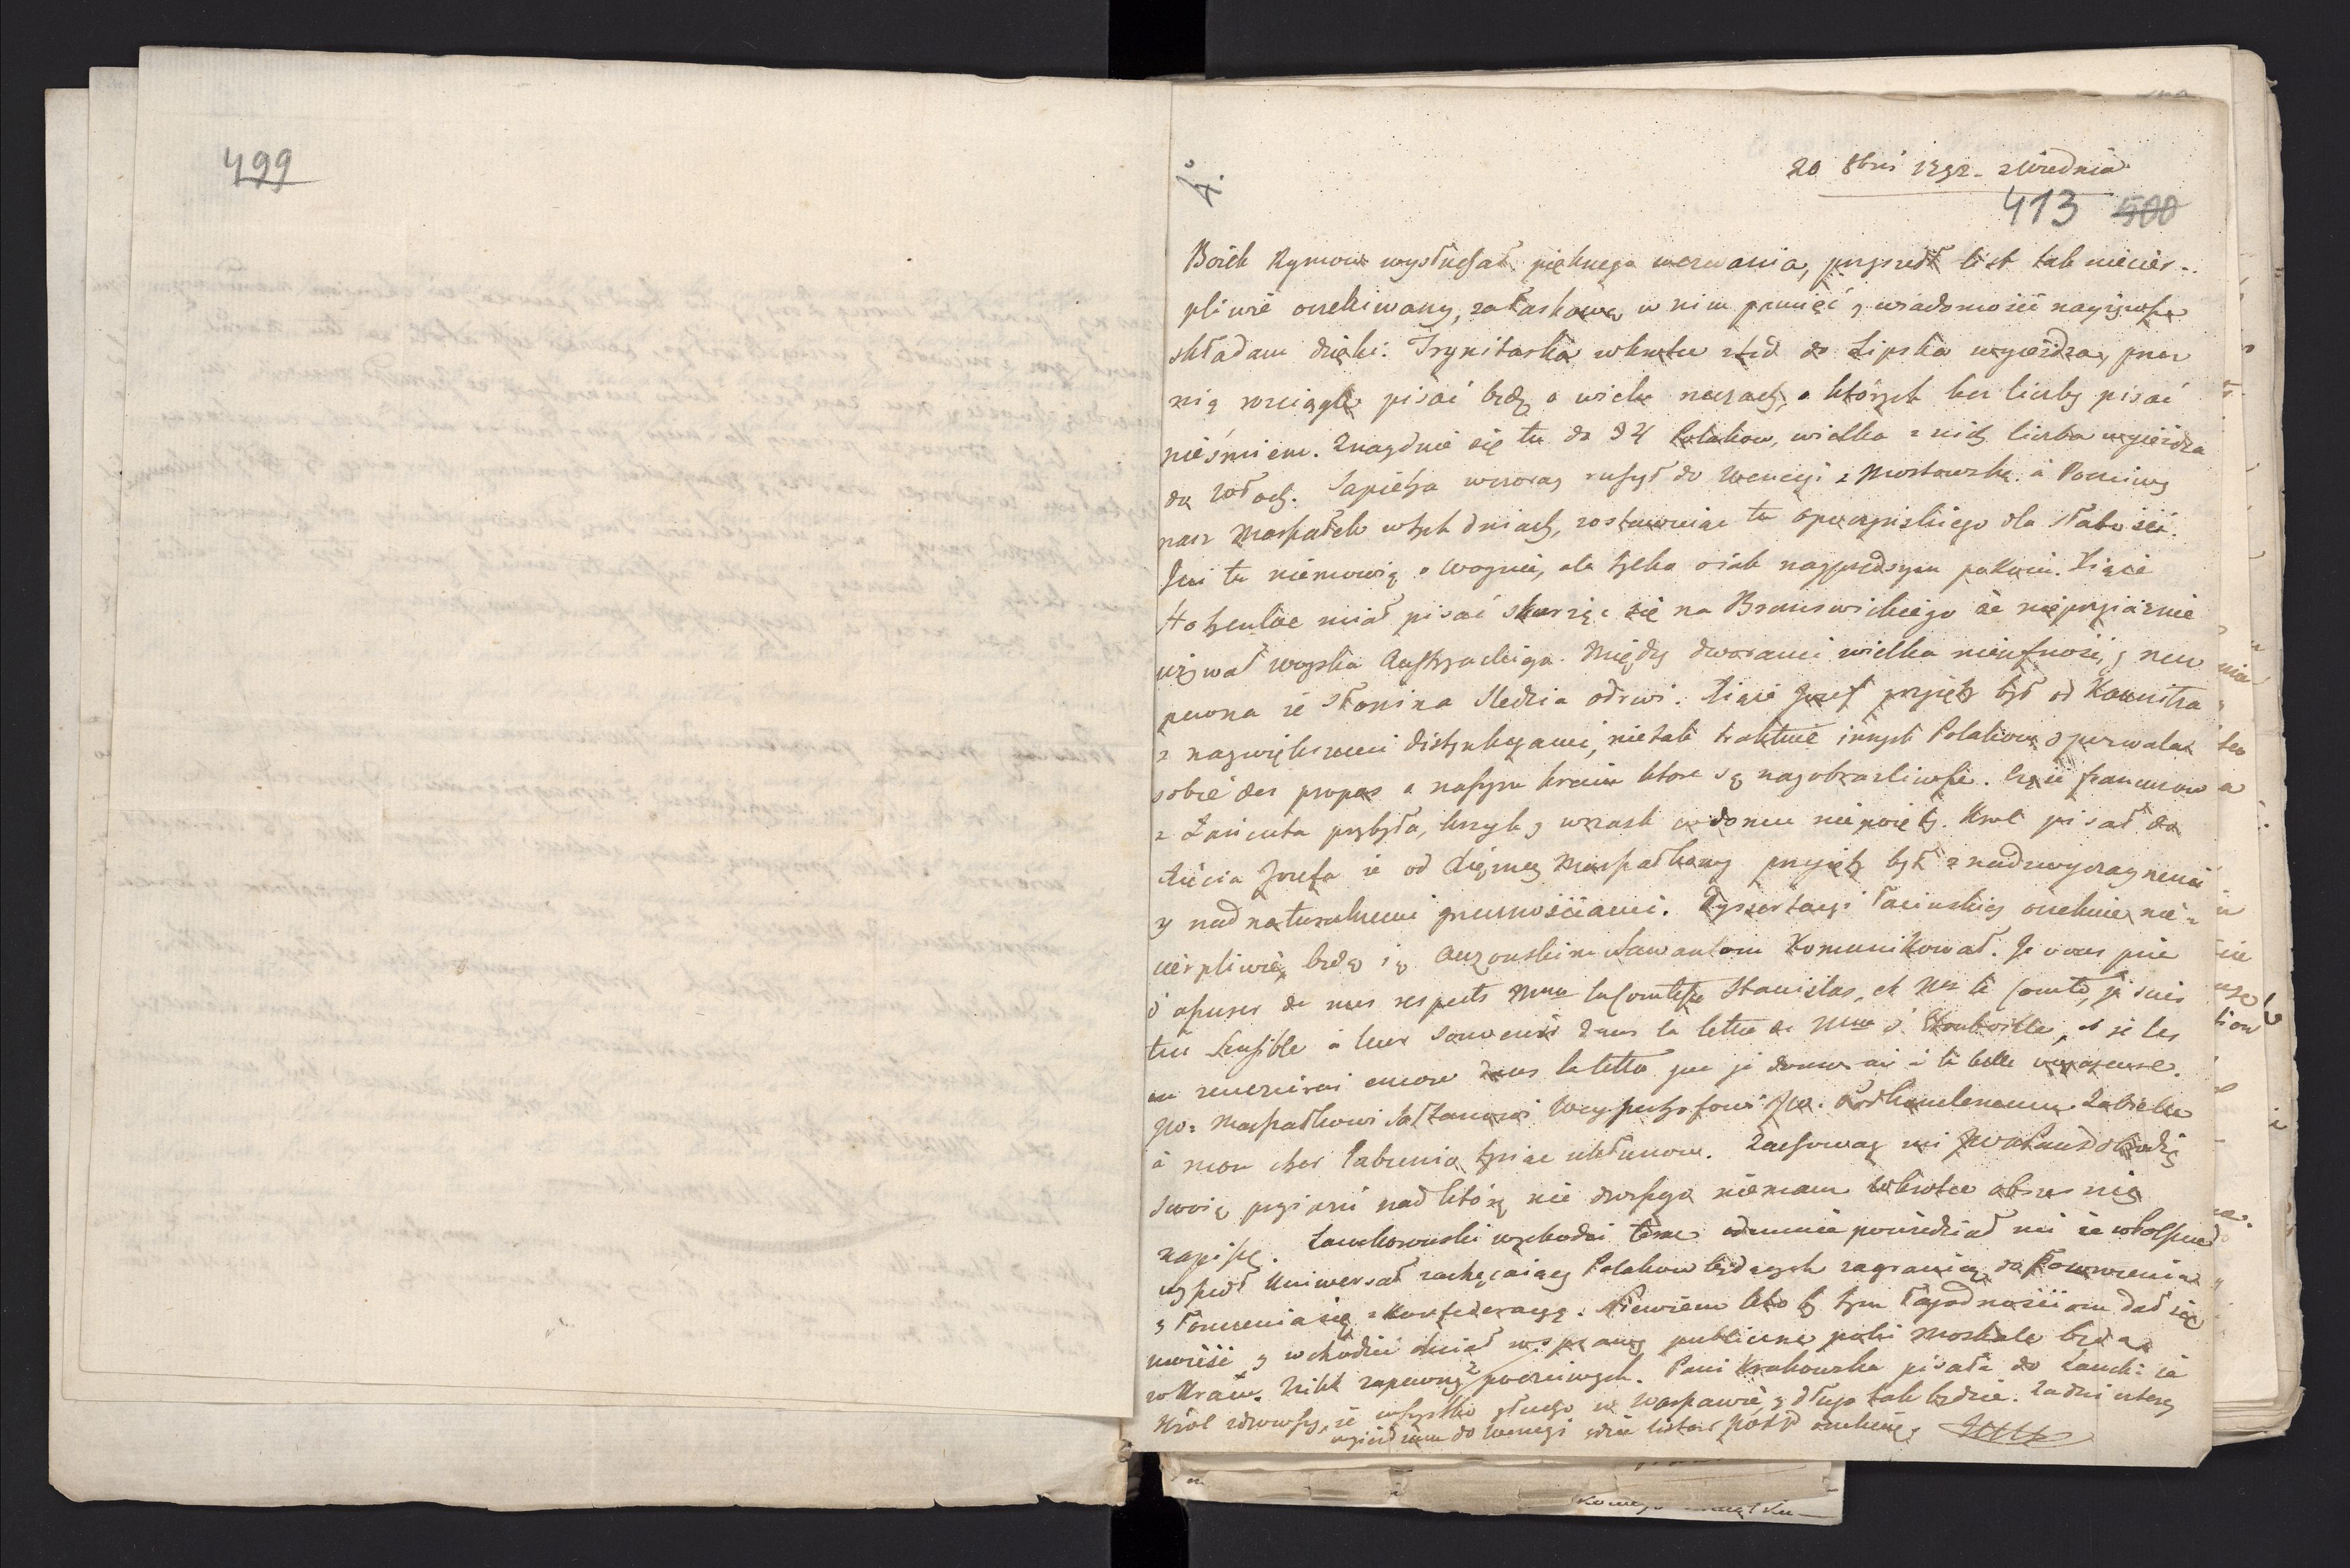 499
4.
20 8bris 1792. z Wiednia
413 500
Bożek Rymow wysłuchał pięknego wezwania, przyszedł list tak niecier-
pliwie oczekiwany, za łaskawą w nim pamięć y wiadomości nayżywsze
składam dzięki. Trynitarka wkrotce ztąd do Lipska wyieżdza, przez
nią rozciągle pisać będę o wielu rzeczach, o ktorych bez liczby pisać
nieśmiem. Znayduie się tu do 94 Polakow, wielka z nich liczba wyieżdza
do Włoch. Sapieha wczoray ruszył do Wenecyi z Mostowską a Poczciwy
nasz Marszałek w tych dniach, zostawuiąc tu Speczyńskiego dla słabości.
Juz tu niemowią o woynie, ale tylko o iak nayprędszym pokoiu. Xiąże
Hohenloe miał pisać skarżąc się na Brunswickiego że nieprzyiaźnie
używał woyska Austryackiego. Między dworami wielka nieufność, y rzecz
pewna że słonina sledzia odrwi. Xiąże Jozef przyięty był od Kaunitza
z naywiększemi dystynkcyami, nie tak traktuie innych Polakow y pozwala
sobie des propos o naszym kraiu ktore są nayobraźliwsze. Częsć francuzow
z Łańcuta przybyła, krzyk y wrzask w domu niepoięty. Krol pisał do
Xięcia Jozefa że od Xiężney Marszałkowy przyięty był z nadzwyczaynemi
y nadnaturalnemi grzecznościami. Dyssertacyi łacinskiey oczekuię nie-
cierpliwie, będę ią Auzonskim sawantom Kommunikował. Je vous prie
d'assurer de mes respects Mme la Comtesse Stanislas, et Mr le Comte, je suis
tres sensible à leur souvenir dans la lettre de Mme d'Hautville, et je les
en remercierai encore dans la lettre que je donnerai à la belle voyageuse.
JW: Marszałkowi Sołtanowi Weyssenhofowi JW. Podkomlenemu Zabielle
à mon cher Labunia tysiąc ukłonow. Zachoway mi JW Panie Dobrodzi
swoię przyiaźń nad ktorą nic droższego niemam wkrotce obszerniey
napiszę. Lanckoronski wychodzi teraz odemnie powiedział mi że w Polszcze
wyszedł Uniwersał zachęcaiący Polakow będących zagranicą do powrocenia
y łączenia się z Konfederacyą. Niewiem kto by tym łagodnościom dał się
uwieść y wchodzić chciał w sprawy publiczne poki Moskale będą
w Kraiu. Nikt zapewne z poczciwych. Pani Krakowska pisała do Lanck: że
Krol zdrowszy, że wszystko głucho w Warszawie, y długo tak będzie. Za dni cztery
wyieżdzam do Wenecyi gdzie listow Pańs: oczekuię.